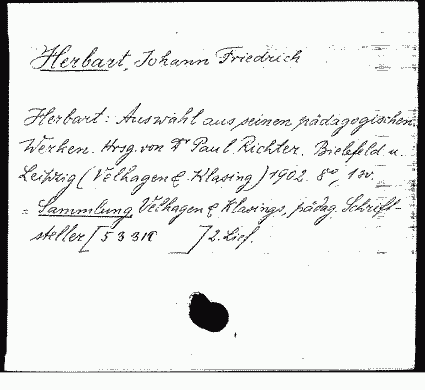 Herbart, Johann Friedrich
Herbart: Auswahl aus seinen pädagogischen
Werken. Hrsg. von Dr Paul Richter. Bielefeld u.
Leipzig (Velhagen & Klasing) 1902. 8°, 1 v.
= Sammlung Velhagen & Klasings, pädag. Schrift-
steller [ ] 2. Lief.